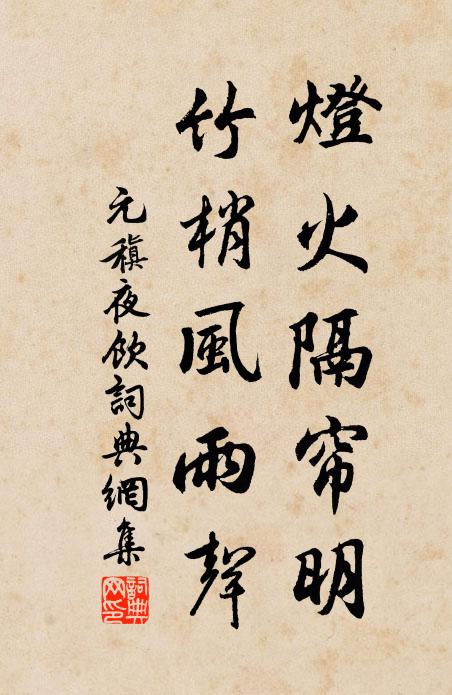 燈火隔帘明
竹梢風雨聲
元稹夜飲詞典網集
詞典
网印